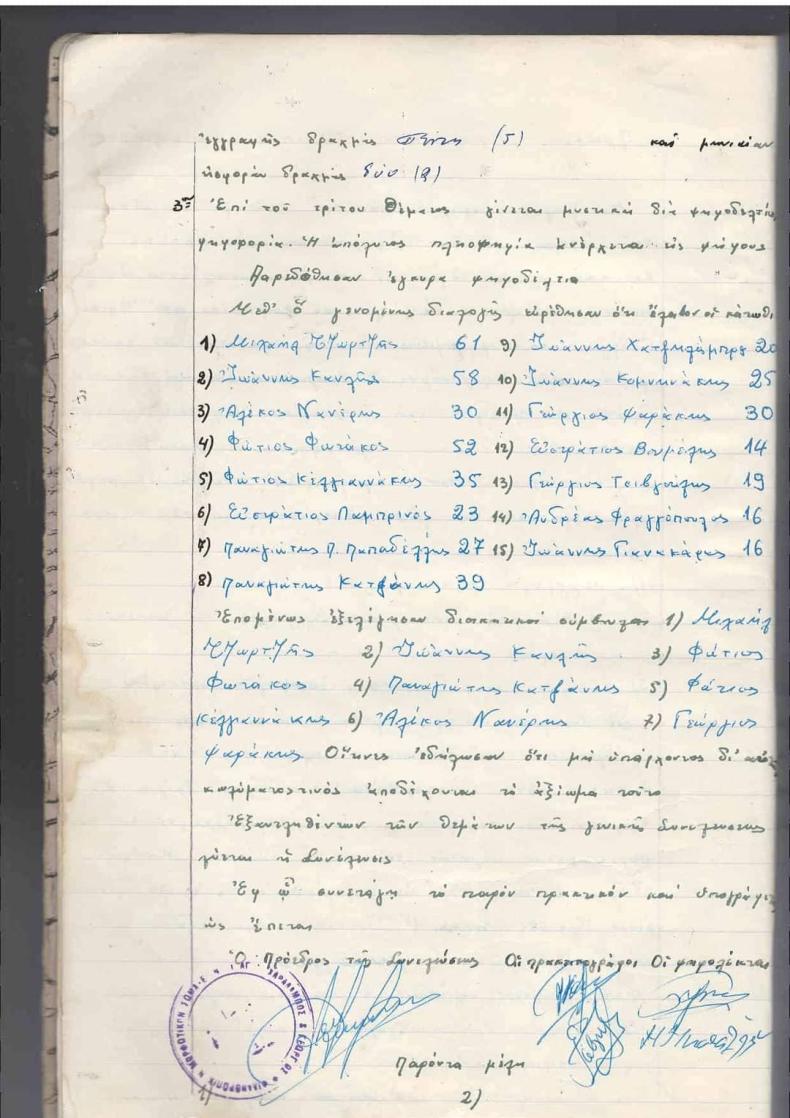 ἐγγραφῆς δραχμὰς πέντε (5) καὶ μηνιαίαν
εἰσφορὰν δραχμὰς δύο (2)
3ον Ἐπὶ τοῦ τρίτου θέματος γίνεται μυστικὴ διὰ ψηφοδελτίων
ψηφοφορία. Ἡ ἀπόλυτος πλειοψηφία ἀνέρχεται εἰς ψήφους
Παρεδόθησαν ἔγκυρα ψηφοδέλτια
Μεθ' ὃ γενομένης διαλογῆς εὑρέθησαν ὅτι ἔλαβον οἱ κάτωθι
1) Μιχαὴλ Τζωρτζῆς 61 9) Ἰωάννης 20
2) Ἰωάννης Κανλῆς 58 10) Ἰωάννης Κομνηνάκης 25
3) Ἀλέκος Νανέρης 30 11) Γεώργιος Ψαράκης 30
4) Φώτιος Φωτάκος 52 12) Εὐστράτιος Βουμέλης 14
5) Φώτιος Κελγιαννάκης 35 13) Γεώργιος 19
6) Εὐστράτιος Λαμπρινός 23 14) Ἀνδρέας Φραγγόπουλος 16
7) Παναγιώτης Π. Παπαδέλλης 27 15) Ἰωάννης Γιανακάρης 16
8) Παναγιώτης Κατβάνης 39
Ἑπομένως ἐξελέγησαν διοικητικοὶ σύμβουλοι 1) Μιχαὴλ
Τζωρτζῆς 2) Ἰωάννης Κανλῆς 3) Φώτιος
Φωτάκος 4) Παναγιώτης Κατβάνης 5) Φώτιος
Κελγιαννάκης 6) Ἀλέκος Νανέρης 7) Γεώργιος
Ψαράκης Οἵτινες ἐδήλωσαν ὅτι μὴ ὑπάρχοντος δι' αὐτοὺς
κωλύματος τινὸς ἀποδέχονται τὸ ἀξίωμα τοῦτο
Ἐξαντληθέντων τῶν θεμάτων τῆς γενικῆς Συνελεύσεως
λύεται ἡ Συνέλευσις
Ἐφ' ᾧ συνετάγη τὸ παρὸν πρακτικὸν καὶ ὑπογράφεται
ὡς ἕπεται
Ὁ Πρόεδρος τῆς Συνελεύσεως Οἱ πρακτικογράφοι Οἱ ψηφολέκται
ΦΙΛΑΝΘΡΩΠΙΚΗ ΜΟΡΦΩΤΙΚΗ
Παρόντα μέλη
1) 2)